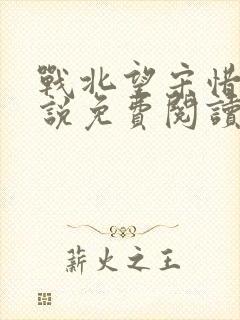 戰北望宋惜
說免費閱讀
薪火之王